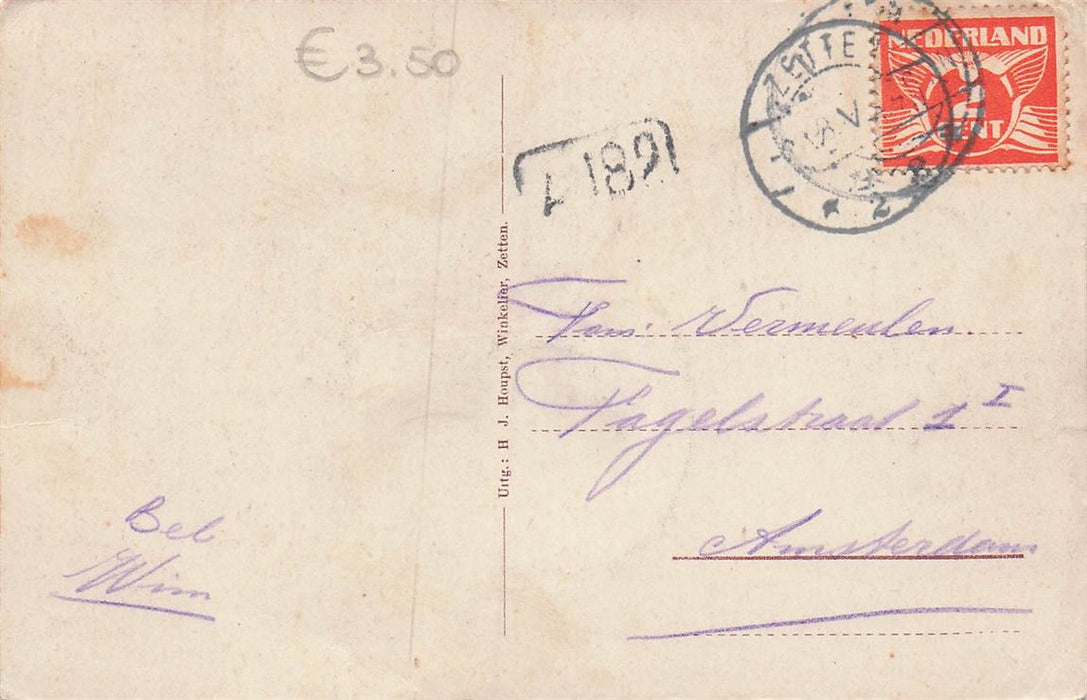 € 3.50
NEDERLAND
CENT
ZETTEN
1821
Uitg.: H J. Houpst, Winkelier, Zetten.
Fam: Vermeulen.
Fagelstraat 1 I
Amsterdam
Bel
Wim